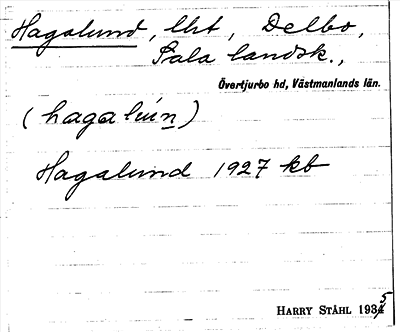 Hagalund, lht, Delbo,
Sala landsk.,
Övertjurbo hd, Västmanlands län.
(hagalúin)
Hagalund 1927 kb
HARRY STÅHL 1935